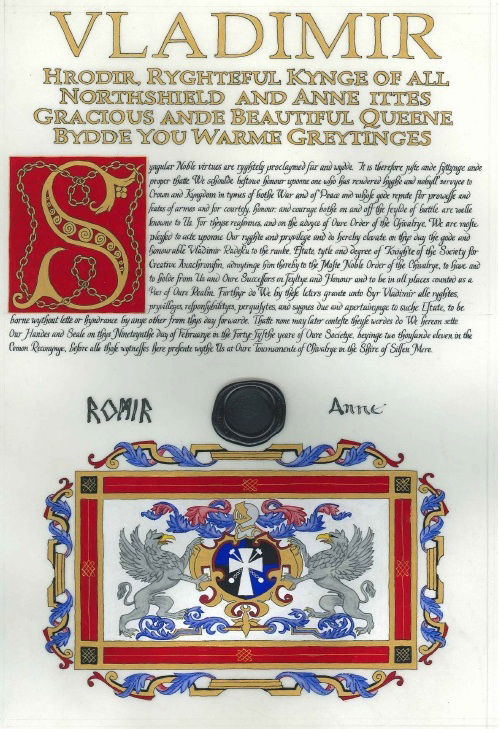 VLADIMIR
HRODIR, RYGHTEFUL KYNGE OF ALL
NORTHSHIELD AND ANNE ITTES
GRACIOUS ANDE BEAUTIFUL QUEENE
BYDDE YOU WARME GREYTINGES
Syngular Noble virtues are ryghtely proclaymed far and wyde. It is therefore juste ande fyttynge ande
proper thatte We schoulde bestowe honour uponne one who has rendered hyghe and nobyll servyce to
Crown and Kyngdom in tymes of bothe War and of Peace and whose gode repute for prowesse and
feates of armes and for courtesy, honour, and courage bothe on and off the feylde of battle are welle
knowne to Us. For theyse reasonnes, and on the advyce of Oure Ordre of the Chivalrye, We are moste
pleased to acte uponne Our ryghte and privilege and do hereby elevate on thys day the gode and
honourable Vladimir Radesku to the ranke, Estate, tytle and degree of Knyghte of the Society for
Creative Anachronism, admytynge him thereby to the Moste Noble Order of the Chivalrye, to have and
to holde from Us and Oure Successors as Feyltye and Honour and to be in all places counted as a
Peer of Oure Realm. Farthyr do We by these leters grante unto Syr Vladimir alle ryghtes,
privileges, responsibilitys, penyaltys, and sygnes due and apertaynynge to suche Estate, to be
borne wythout lette or hyndrance by anye other from thys day forwarde. Thatte none may later conteste theyse wordes do We hereon sette
Our Handes and Seale on thys Nineteynthe day of Februarye in the Forty-Fyfthe yeare of Oure Societye, beyinge two thousande eleven in the
Comon Reconynge, before alle those wytnesses here presente wythe Us at Oure Tournamente of Chivalrye in the Shire of Silfen Mere.
ROMIR Anne